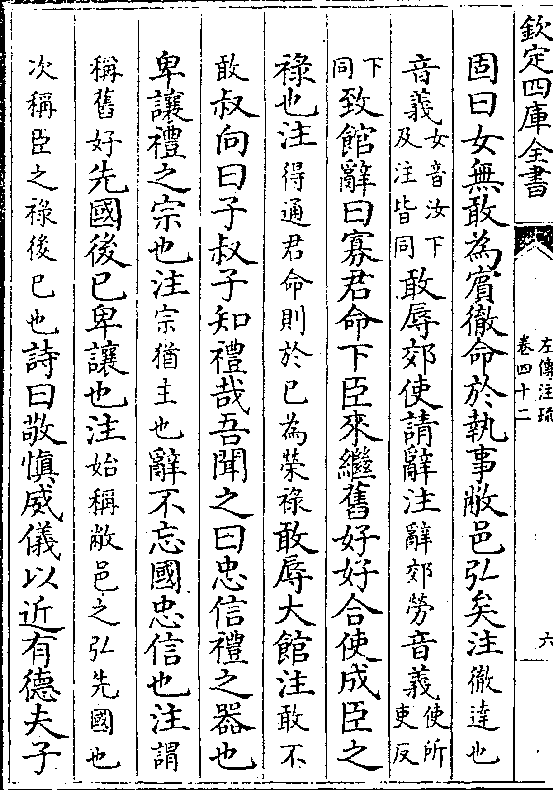 欽定四庫全書
左傳注疏
卷四十二
六
固曰女無敢為賓徹命於執事敝邑弘矣注徹達也
音義女音汝下及注皆同敢辱郊使請辭注辭郊勞音義使所吏反
下同致館辭曰寡君命下臣來繼舊好好合使成臣之
祿也注得通君命則於已為榮祿敢辱大館注敢不
敢叔向曰子叔子知禮哉吾聞之曰忠信禮之器也
卑讓禮之宗也注宗猶主也辭不忘國忠信也注謂
稱舊好先國後已卑讓也注始稱敝邑之弘先國也
次稱臣之祿後已也詩曰敬慎威儀以近有德夫子